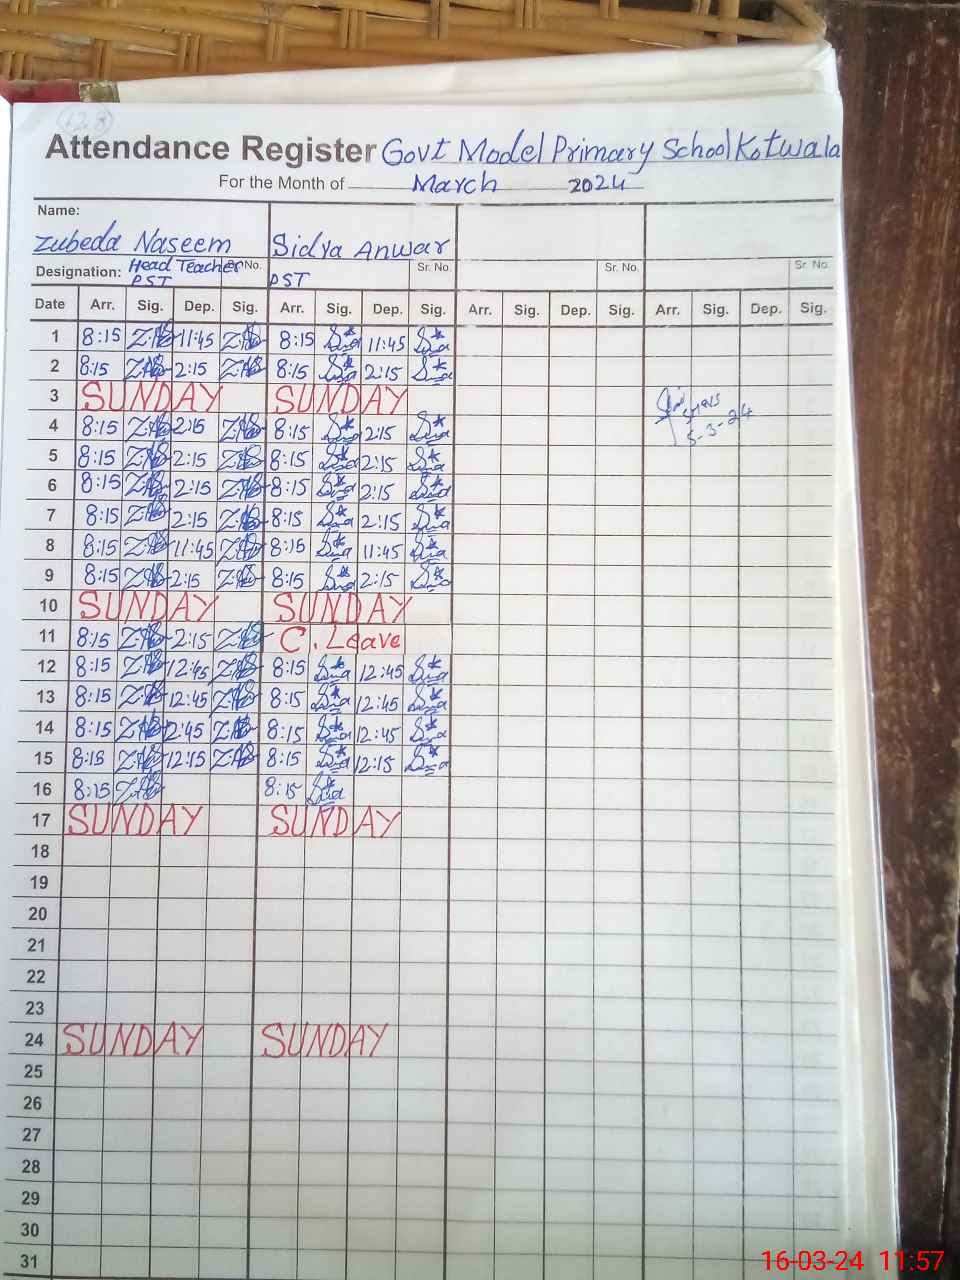 128
Attendance Register Govt Model Primary School Kotwala
For the Month of March 2024
Name:
Zubeda Naseem Sidra Anwar
Designation: Head Teacher Sr. No. Sr. No. Sr. No. Sr. No.
PST PST
Date Arr. Sig. Dep. Sig. Arr. Sig. Dep. Sig. Arr. Sig. Dep. Sig. Arr. Sig. Dep. Sig.
1 8:15 11:45 8:15 11:45
2 8:15 2:15 8:15 2:15
3 SUNDAY SUNDAY
4 8:15 2:15 8:15 2:15
5-3-24
5 8:15 2:15 8:15 2:15
6 8:15 2:15 8:15 2:15
7 8:15 2:15 8:15 2:15
8 8:15 11:45 8:15 11:45
9 8:15 2:15 8:15 2:15
10 SUNDAY SUNDAY
11 8:15 2:15 C. Leave
12 8:15 12:45 8:15 12:45
13 8:15 12:45 8:15 12:45
14 8:15 12:45 8:15 12:45
15 8:15 12:15 8:15 12:15
16 8:15 8:15
17 SUNDAY SUNDAY
18
19
20
21
22
23
24 SUNDAY SUNDAY
25
26
27
28
29
30
31
16-03-24 11:57